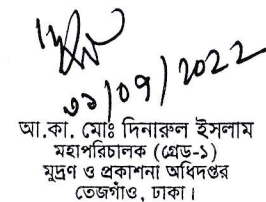 ৩১/০৭/২০২২
আ.কা. মোঃ দিনারুল ইসলাম
মহাপরিচালক (গ্রেড-১)
মুদ্রণ ও প্রকাশনা অধিদপ্তর
তেজগাঁও, ঢাকা।